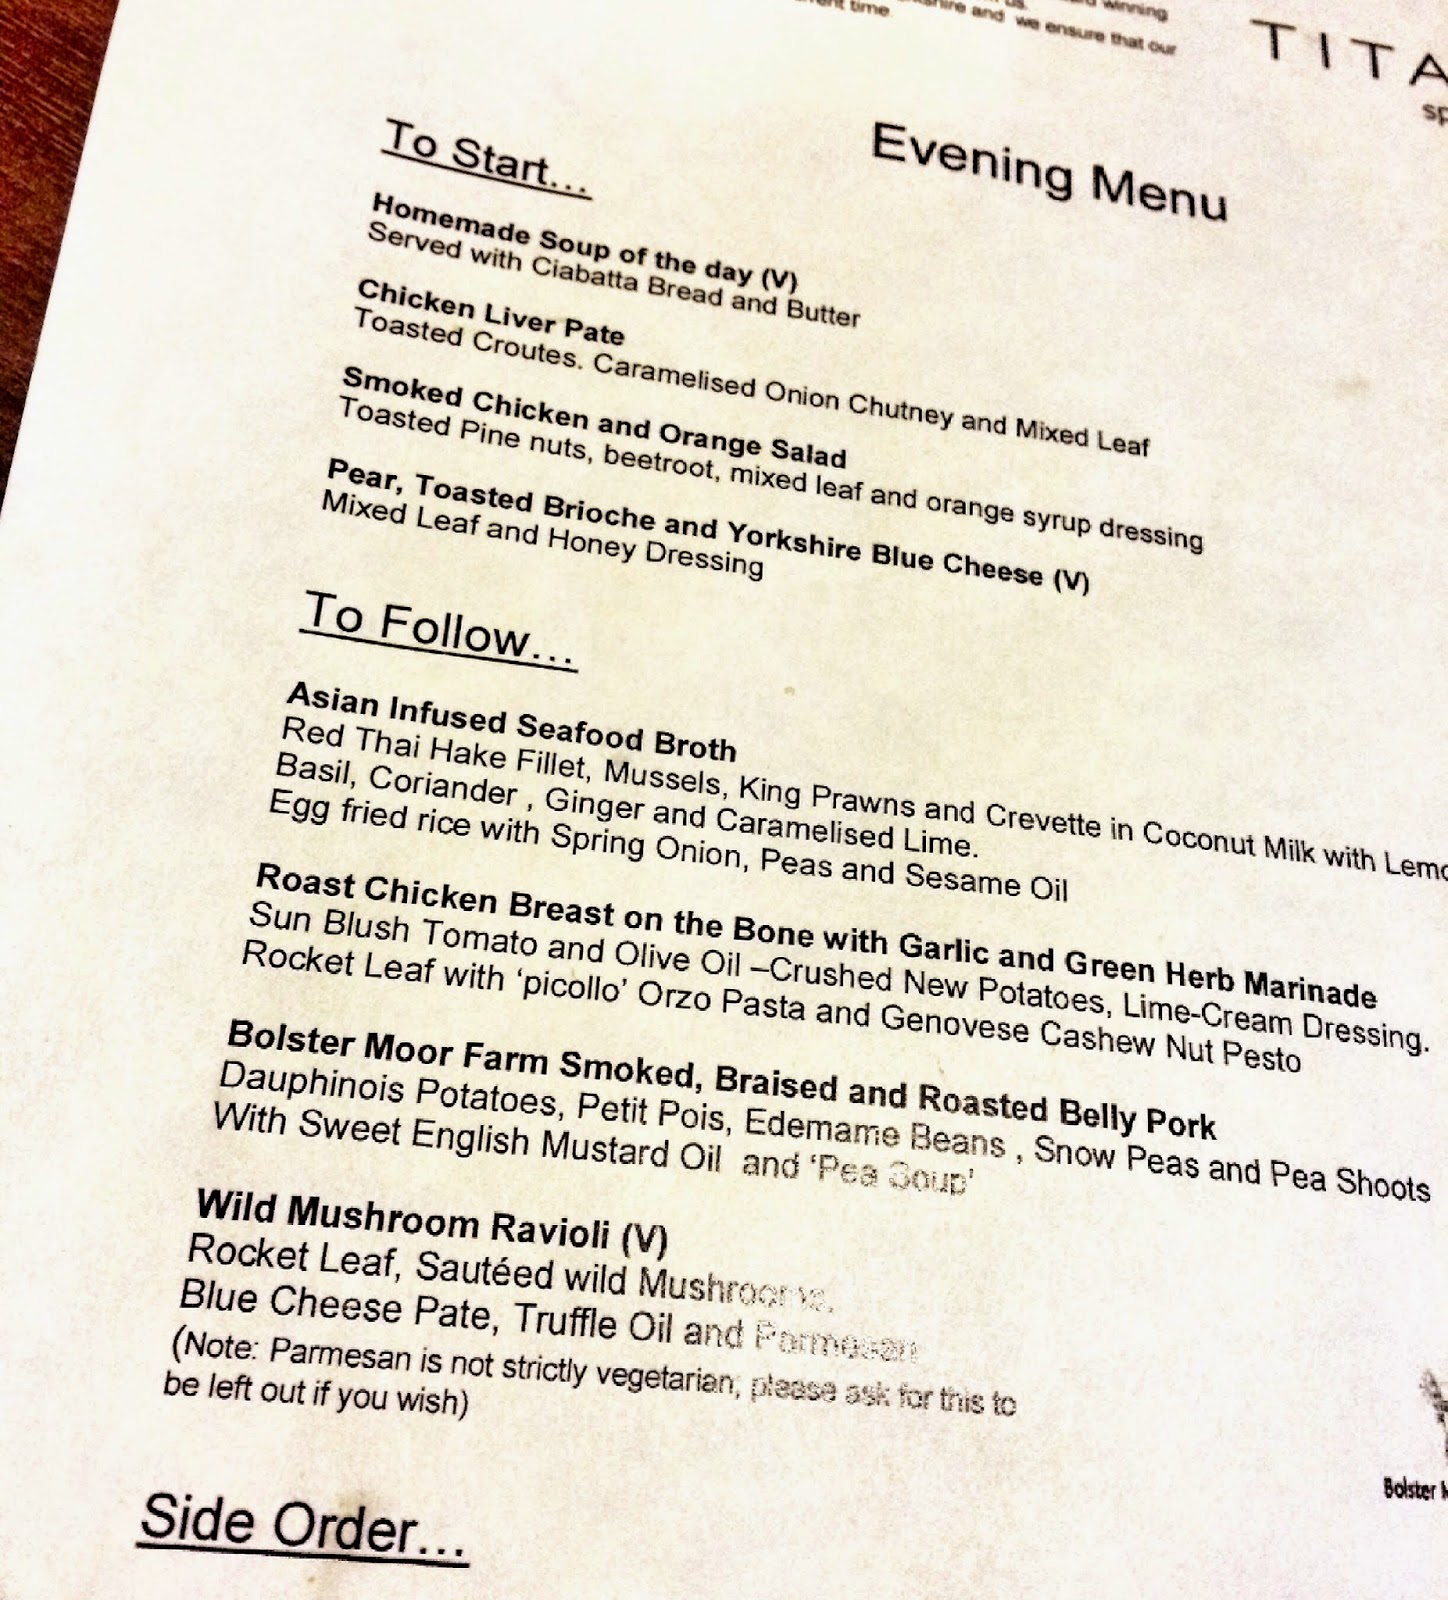 winning
shire and we ensure that our
time.
TITA
sp
Evening Menu
To Start...
Homemade Soup of the day (V)
Served with Ciabatta Bread and Butter
Chicken Liver Pate
Toasted Croutes. Caramelised Onion Chutney and Mixed Leaf
Smoked Chicken and Orange Salad
Toasted Pine nuts, beetroot, mixed leaf and orange syrup dressing
Pear, Toasted Brioche and Yorkshire Blue Cheese (V)
Mixed Leaf and Honey Dressing
To Follow...
Asian Infused Seafood Broth
Red Thai Hake Fillet, Mussels, King Prawns and Crevette in Coconut Milk with Lemo
Basil, Coriander , Ginger and Caramelised Lime.
Egg fried rice with Spring Onion, Peas and Sesame Oil
Roast Chicken Breast on the Bone with Garlic and Green Herb Marinade
Sun Blush Tomato and Olive Oil –Crushed New Potatoes, Lime-Cream Dressing.
Rocket Leaf with ‘picollo’ Orzo Pasta and Genovese Cashew Nut Pesto
Bolster Moor Farm Smoked, Braised and Roasted Belly Pork
Dauphinois Potatoes, Petit Pois, Edemame Beans , Snow Peas and Pea Shoots
With Sweet English Mustard Oil and ‘Pea Soup’
Wild Mushroom Ravioli (V)
Rocket Leaf, Sautéed wild Mushrooms.
Blue Cheese Pate, Truffle Oil and Parmesan
(Note: Parmesan is not strictly vegetarian, please ask for this to
be left out if you wish)
Bolster
Side Order...